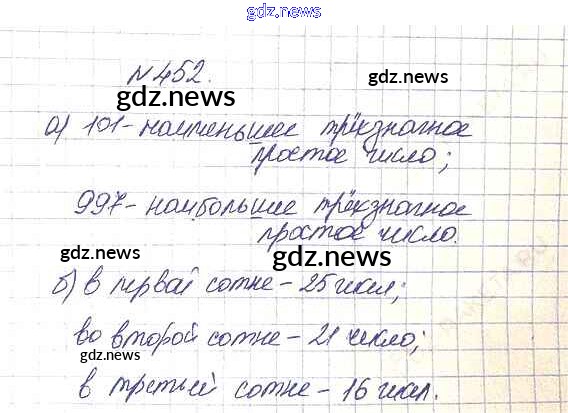 gdz.news
gdz.news
№452.
gdz.news
а) 101 - наименьшее трёхзначное
gdz.news
простое число;
997 - наибольшие трёхзначное
простое число.
gdz.news
gdz.news
б) в первай сотне - 25 чисел;
во второй сотне - 21 число;
gdz.news
в третьей сотне - 16 чисел.
gdz.news